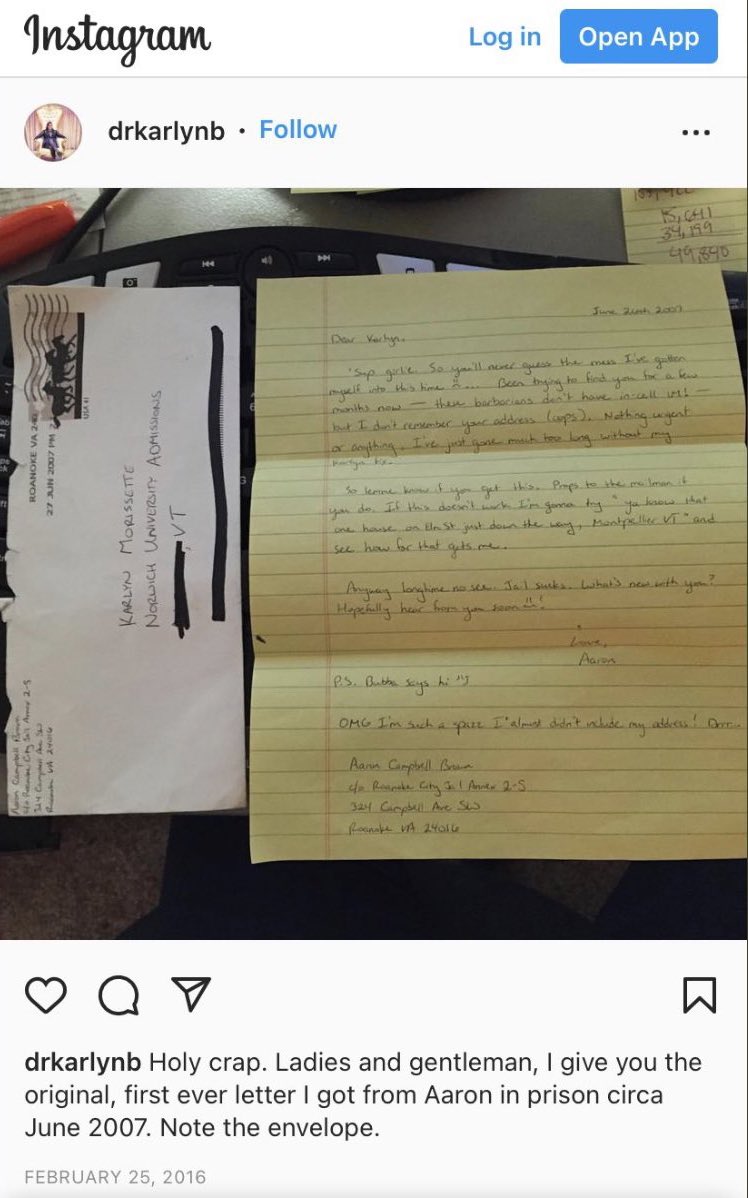 Instagram
Log in
Open App
drkarlynb • Follow
15,641
34,199
49,840
ROANOKE VA 240
27 JUN 2007 PM
USA 41
KARLYN MORISSETTE
NORWICH UNIVERSITY ADMISSIONS
, VT
Aaron Campbell Brown
c/o Roanoke City Jail Annex 2-S
324 Campbell Ave SW
Roanoke VA 24016
June 26th 2007
Dear Karlyn,
'Sup girlie. So you'll never guess the mess I've gotten
myself into this time ... Been trying to find you for a few
months now — these barbarians don't have in-cell IM! —
but I don't remember your address (oops). Nothing urgent
or anything, I've just gone much too long without my
Karlyn fix.
So lemme know if you get this. Props to the mailman if
you do. If this doesn't work I'm gonna try "ya know that
one house on Elm St. just down the way, Montpellier VT" and
see how far that gets me.
Anyway longtime no see. Jail sucks. What's new with you?
Hopefully hear from you soon!!
Love,
Aaron
P.S. Bubba says hi
OMG I'm such a spazz I almost didn't include my address! Drrr..
Aaron Campbell Brown
c/o Roanoke City Jail Annex 2-S
324 Campbell Ave SW
Roanoke VA 24016
drkarlynb Holy crap. Ladies and gentleman, I give you the
original, first ever letter I got from Aaron in prison circa
June 2007. Note the envelope.
FEBRUARY 25, 2016